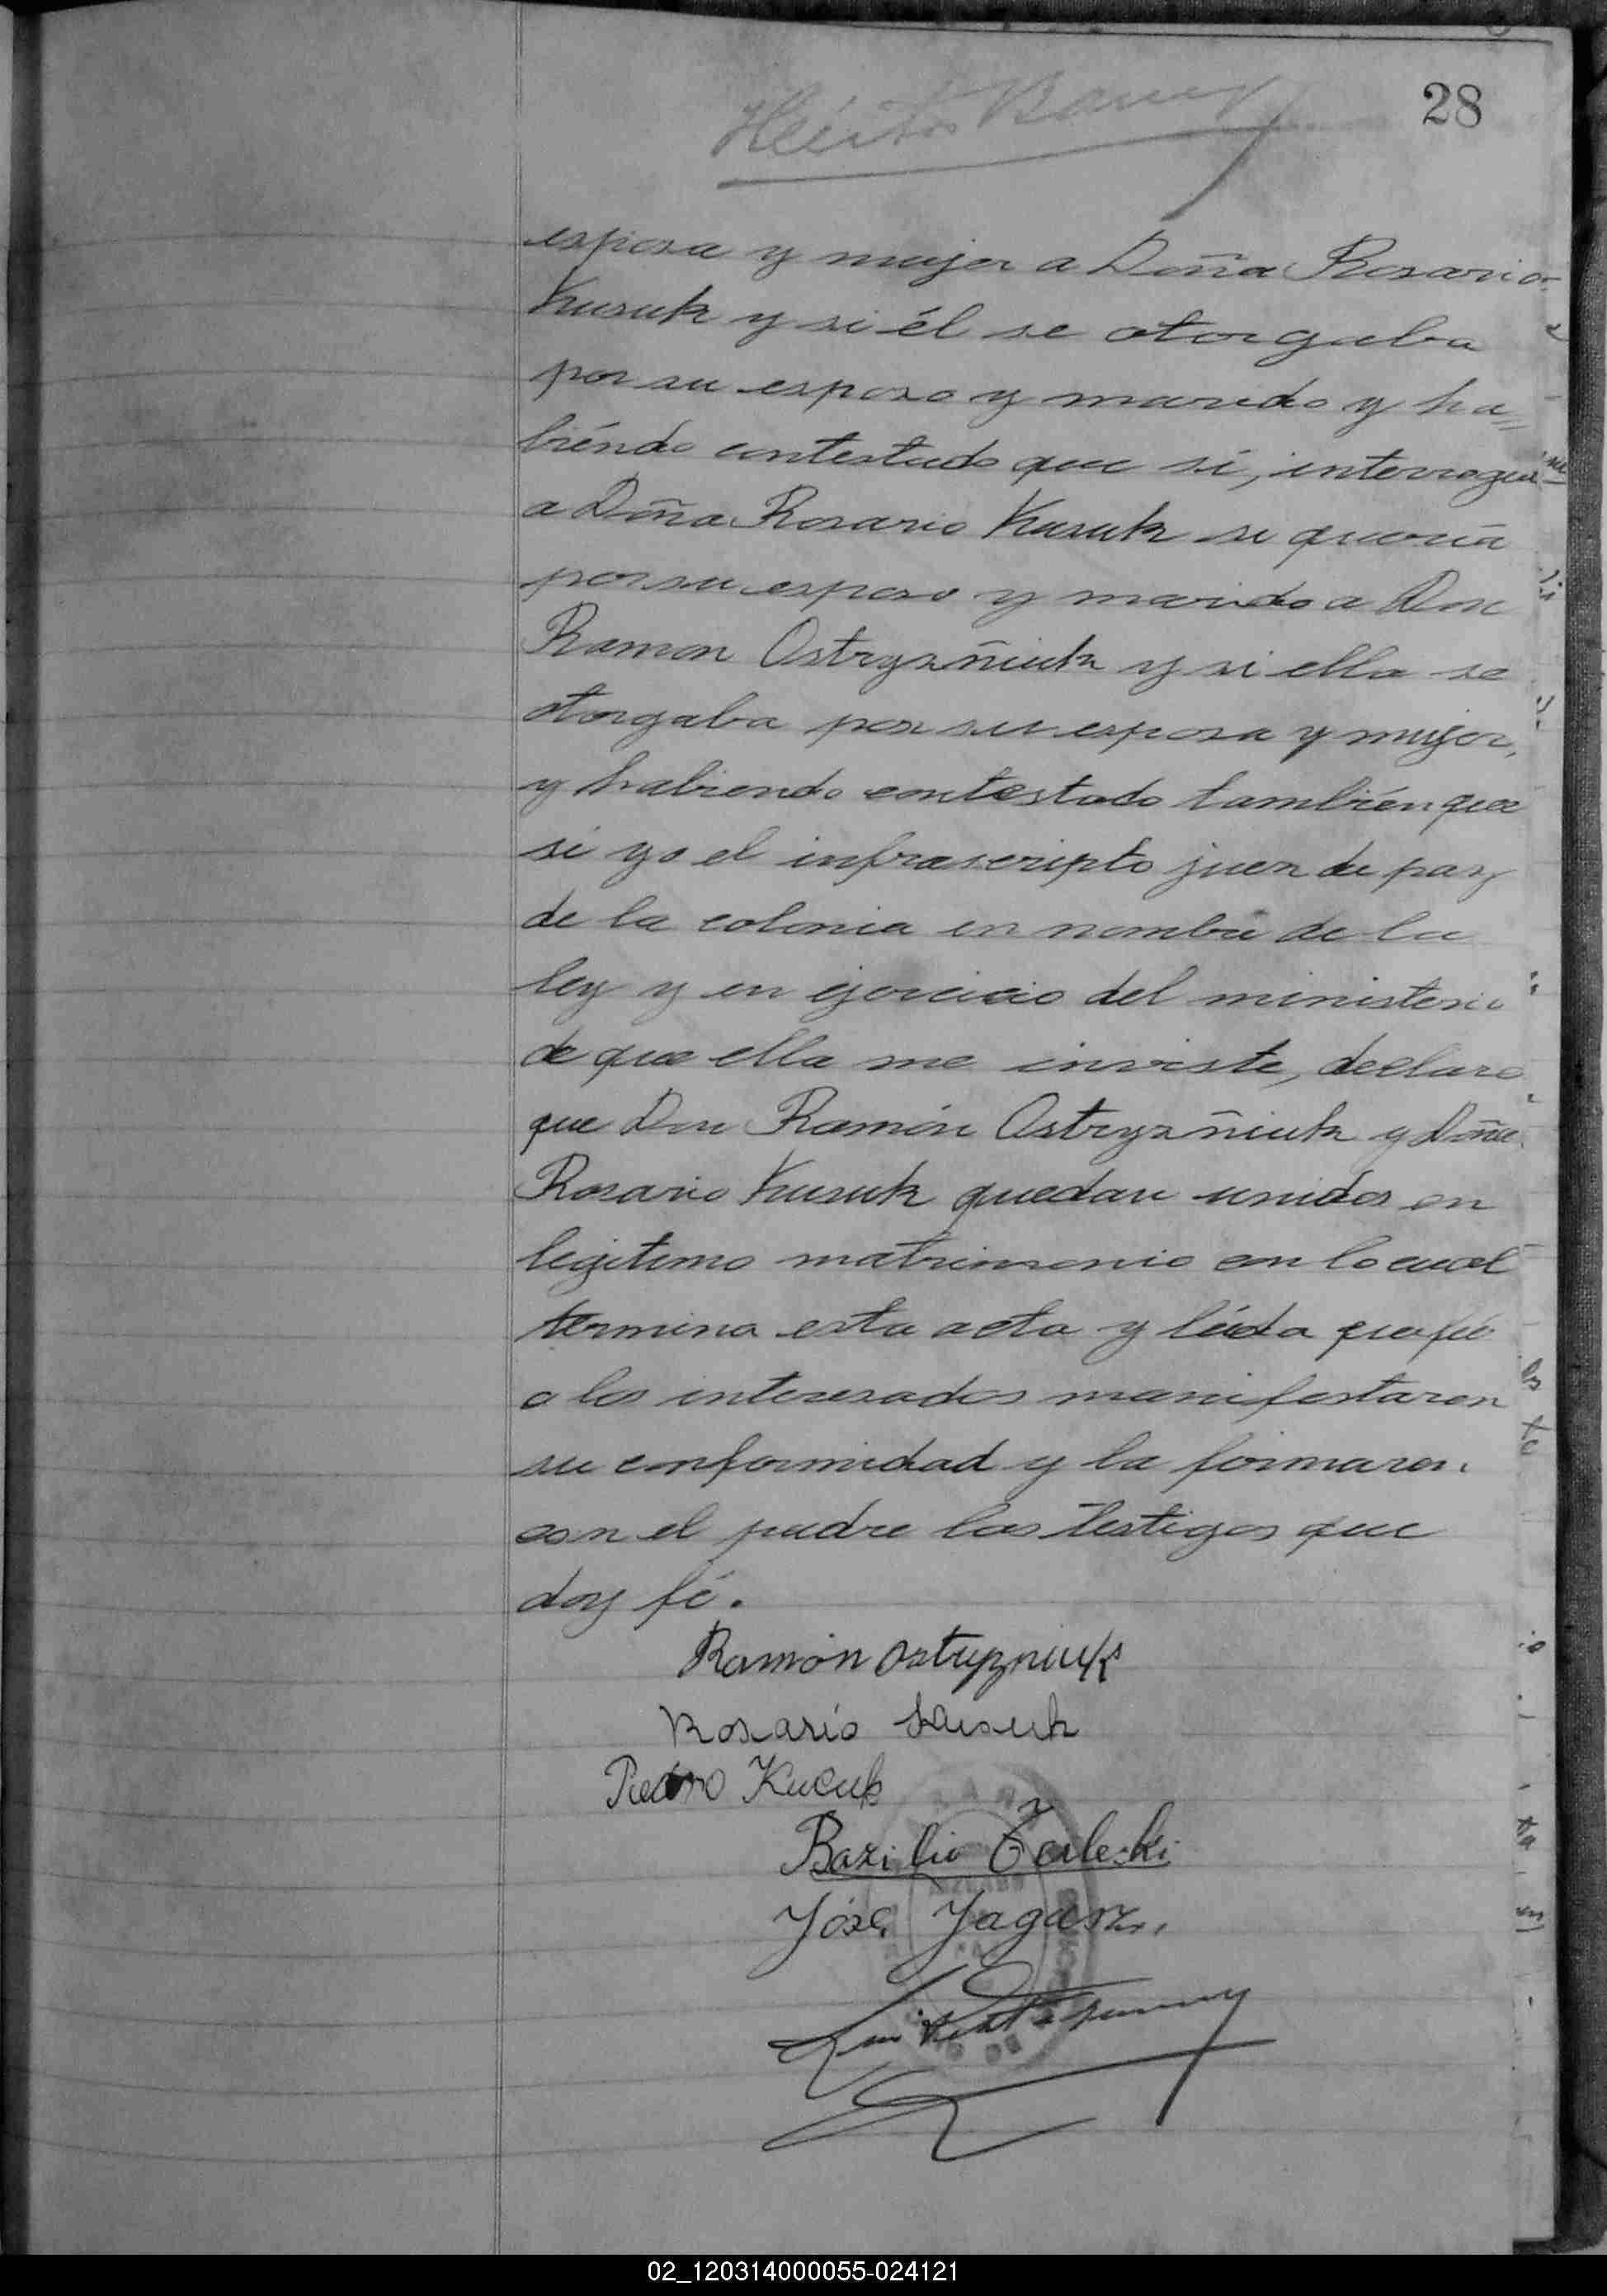 28
esposa y mujer a Doña Rosario
Kusuk y si él se otorgaba
por su esposo y marido y ha=
biéndo contestado que sí, interrogué
a Doña Rosario Kusuk si quería
por su esposo y marido a Don
Ramon Ostryzñiuk y si ella se
otorgaba por su esposa y mujer,
y habiendo contestado también que
sí yo el infrascripto juez de paz
de la colonia en nombre de la
ley y en ejercicio del ministerio
de que ella me inviste, declaro
que Don Ramón Ostryzñiuk y Doña
Rosario Kusuk quedan unidos en
legitimo matrimonio con lo cual
termina esta acta y léida que fué
a los interesados manifestaron
su conformidad y la firmaron
con el padre los testigos que
doy fé.
Ramón Ostryzniuk
Rosario Kusuk
Piedro Kucuk
Bazilio Terleski
José Jagasz
02_120314000055-024121